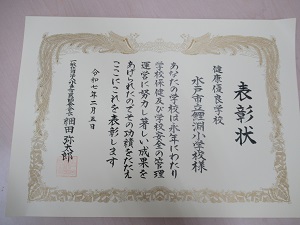 表彰状
健康優良学校
水戸市立鯉淵小学校様
あなたの学校は永年にわたり
学校保健及び学校安全の管理
運営に努力し著しい成果を
あげられたのでその功績をたたえ
ここにこれを表彰します
令和七年二月五日
細田弥太郎